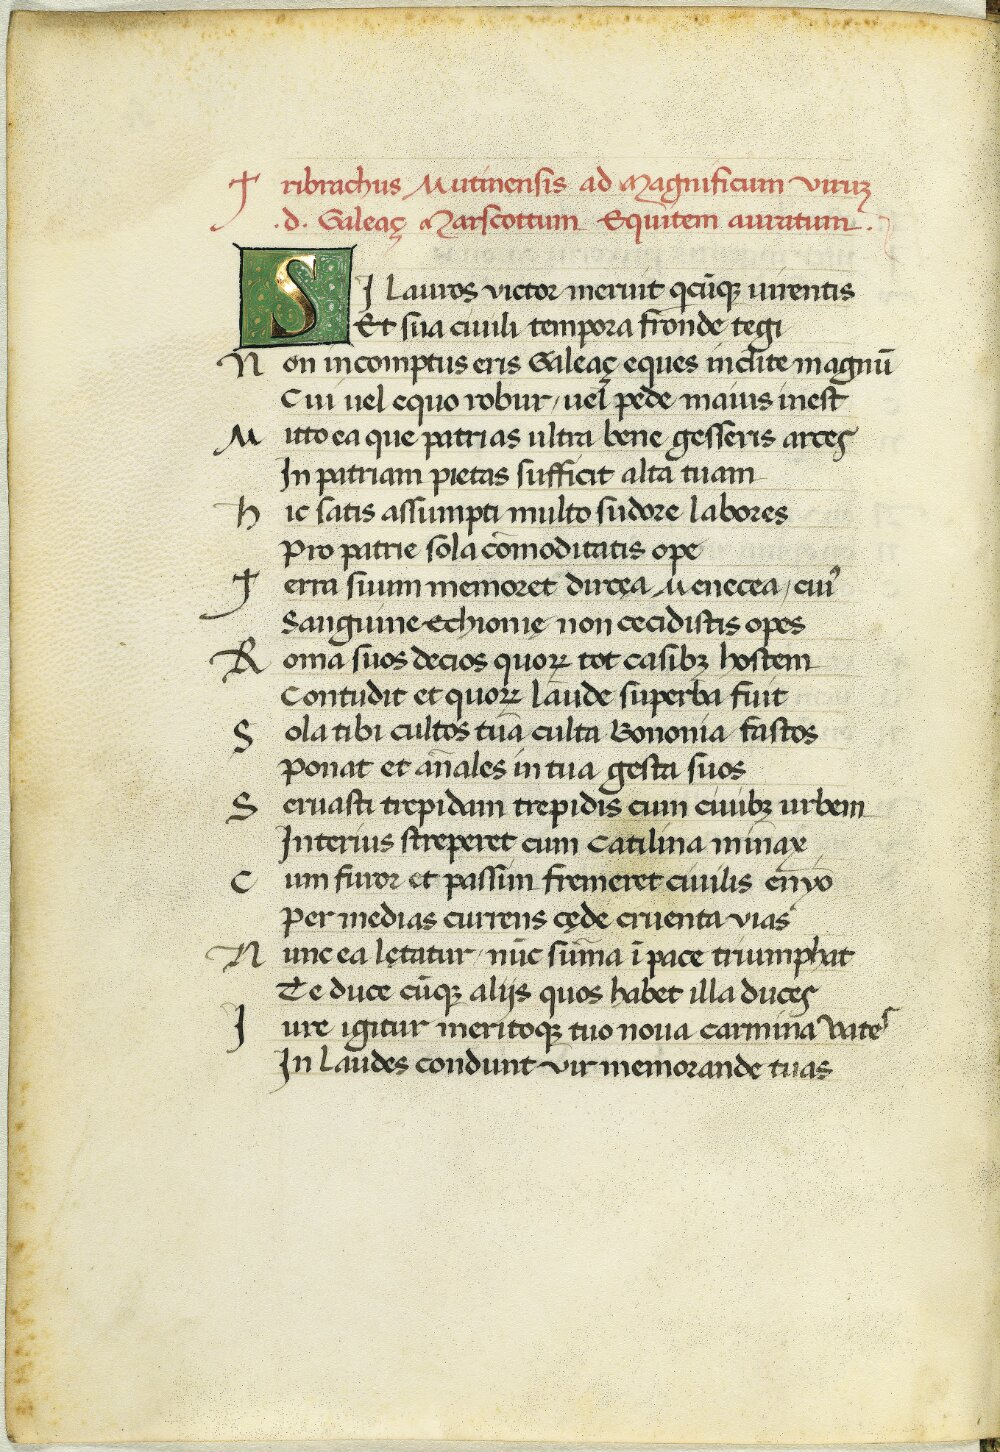 Tribrachus Mutinensis ad Magnificum viruꝫ
.d. Galeaç Marscottum Equitem auratum.
SI Lauros victor meruit qcūqꝫ uirentis
Et sua ciuili tempora fronde tegi
Non incomptus eris Galeaç eques inclite magnū
Cui uel equo robur/uel pede maius inest
Mitto ea que patrias ultra bene gesseris arces
In patriam pietas sufficit alta tuam
Hic satis assumpti multo sudore labores
Pro patrie sola cōmoditatis ope
Terra suum memoret dircęa Menecea/cuiꝰ
Sanguine Echionię non cecidistis opes
Roma suos decios quoꝝ tot casibꝫ hostem
Contudit et quoꝝ laude superba fuit
Sola tibi cultos tuā culta Bononia fastos
Ponat et añales in tua gesta suos
Seruasti trepidam trepidis cum ciuibꝫ urbem
Interius streperet cum Catilina minax
Cum furor et passim fremeret ciuilis enyo
Per medias currens cęde cruenta vias
Nunc ea lętatur/nūc sūma ī pace triumphat
Te duce cūqꝫ alijs quos habet illa duces
Iure igitur meritoqꝫ tuo noua carmina vates
In Laudes condunt vir memorande tuas